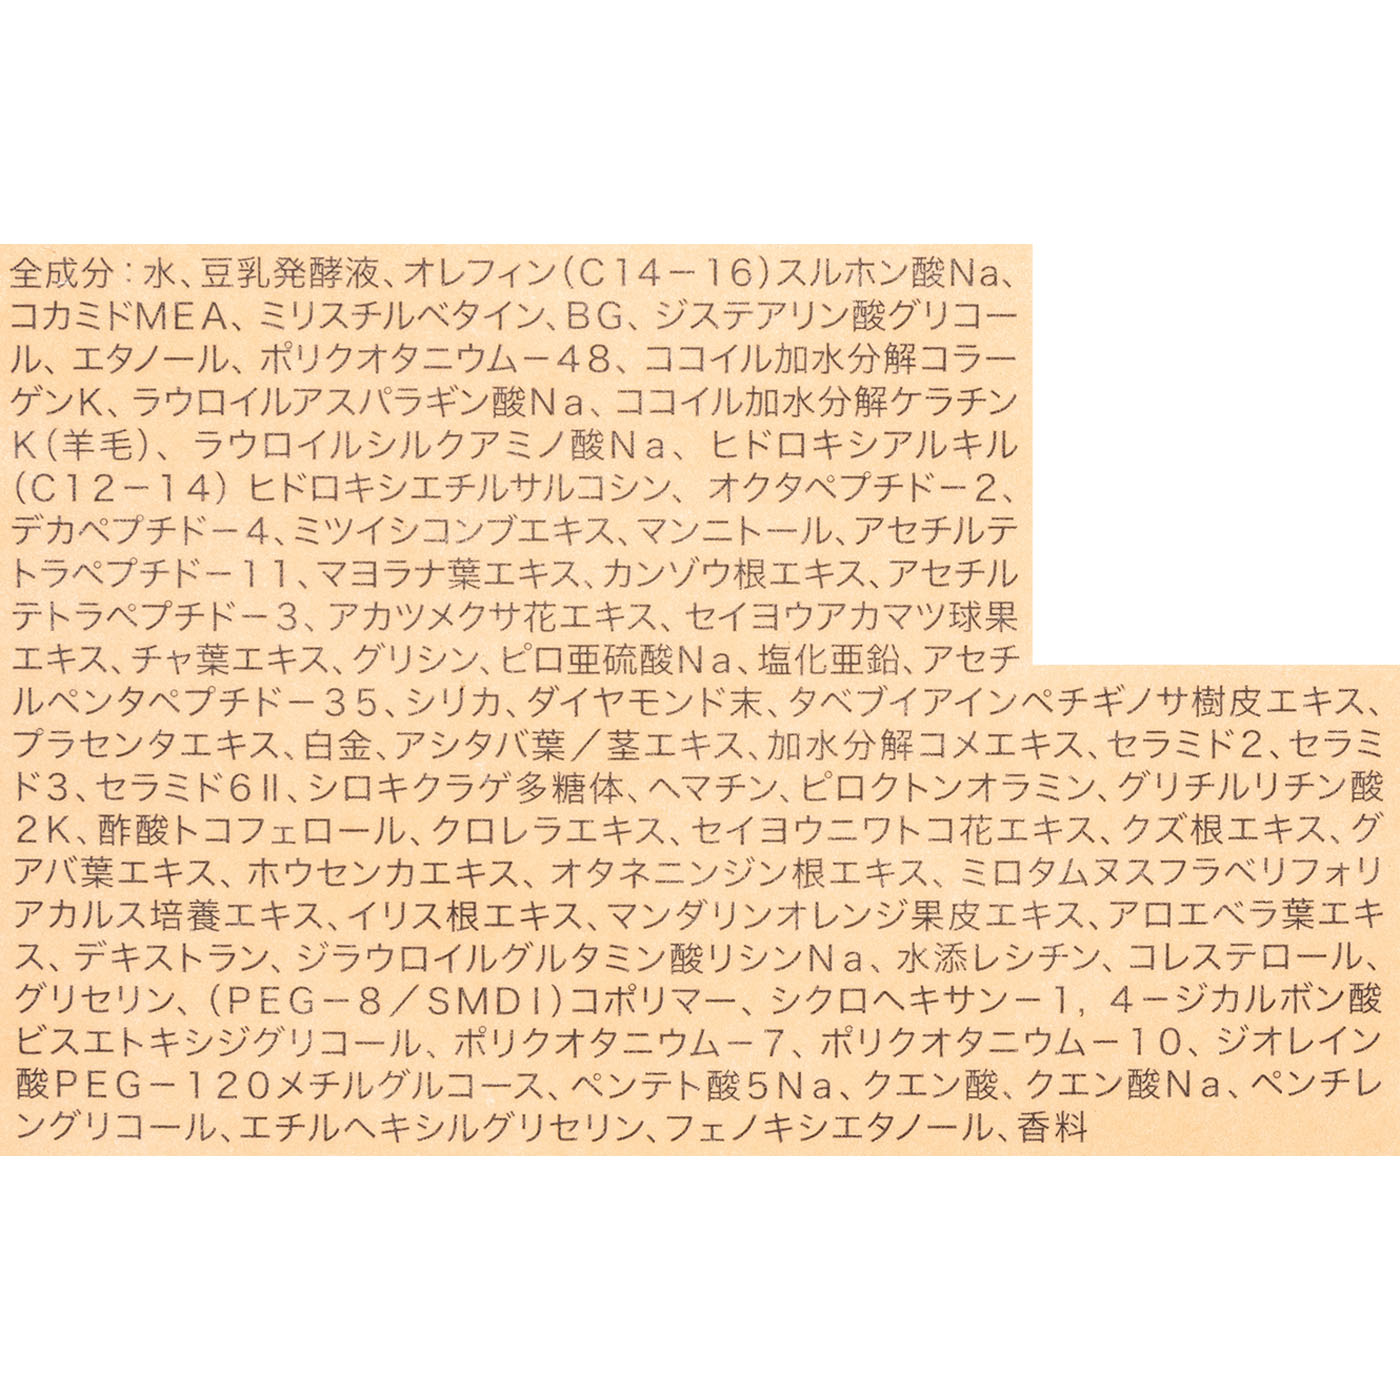 全成分：水、豆乳発酵液、オレフィン（C14－16）スルホン酸Na、
コカミドMEA、ミリスチルベタイン、BG、ジステアリン酸グリコー
ル、エタノール、ポリクオタニウム－48、ココイル加水分解コラー
ゲンK、ラウロイルアスパラギン酸Na、ココイル加水分解ケラチン
K（羊毛）、ラウロイルシルクアミノ酸Na、ヒドロキシアルキル
（C12－14）ヒドロキシエチルサルコシン、オクタペプチド－2、
デカペプチド－4、ミツイシコンブエキス、マンニトール、アセチルテ
トラペプチド－11、マヨラナ葉エキス、カンゾウ根エキス、アセチル
テトラペプチド－3、アカツメクサ花エキス、セイヨウアカマツ球果
エキス、チャ葉エキス、グリシン、ピロ亜硫酸Na、塩化亜鉛、アセチ
ルペンタペプチド－35、シリカ、ダイヤモンド末、タベブイアインペチギノサ樹皮エキス、
プラセンタエキス、白金、アシタバ葉／茎エキス、加水分解コメエキス、セラミド2、セラミ
ド3、セラミド6Ⅱ、シロキクラゲ多糖体、ヘマチン、ピロクトンオラミン、グリチルリチン酸
2K、酢酸トコフェロール、クロレラエキス、セイヨウニワトコ花エキス、クズ根エキス、グ
アバ葉エキス、ホウセンカエキス、オタネニンジン根エキス、ミロタムヌスフラベリフォリ
アカルス培養エキス、イリス根エキス、マンダリンオレンジ果皮エキス、アロエベラ葉エキ
ス、デキストラン、ジラウロイルグルタミン酸リシンNa、水添レシチン、コレステロール、
グリセリン、（PEG－8／SMDI）コポリマー、シクロヘキサン－1，4－ジカルボン酸
ビスエトキシジグリコール、ポリクオタニウム－7、ポリクオタニウム－10、ジオレイン
酸PEG－120メチルグルコース、ペンテト酸5Na、クエン酸、クエン酸Na、ペンチレ
ングリコール、エチルヘキシルグリセリン、フェノキシエタノール、香料